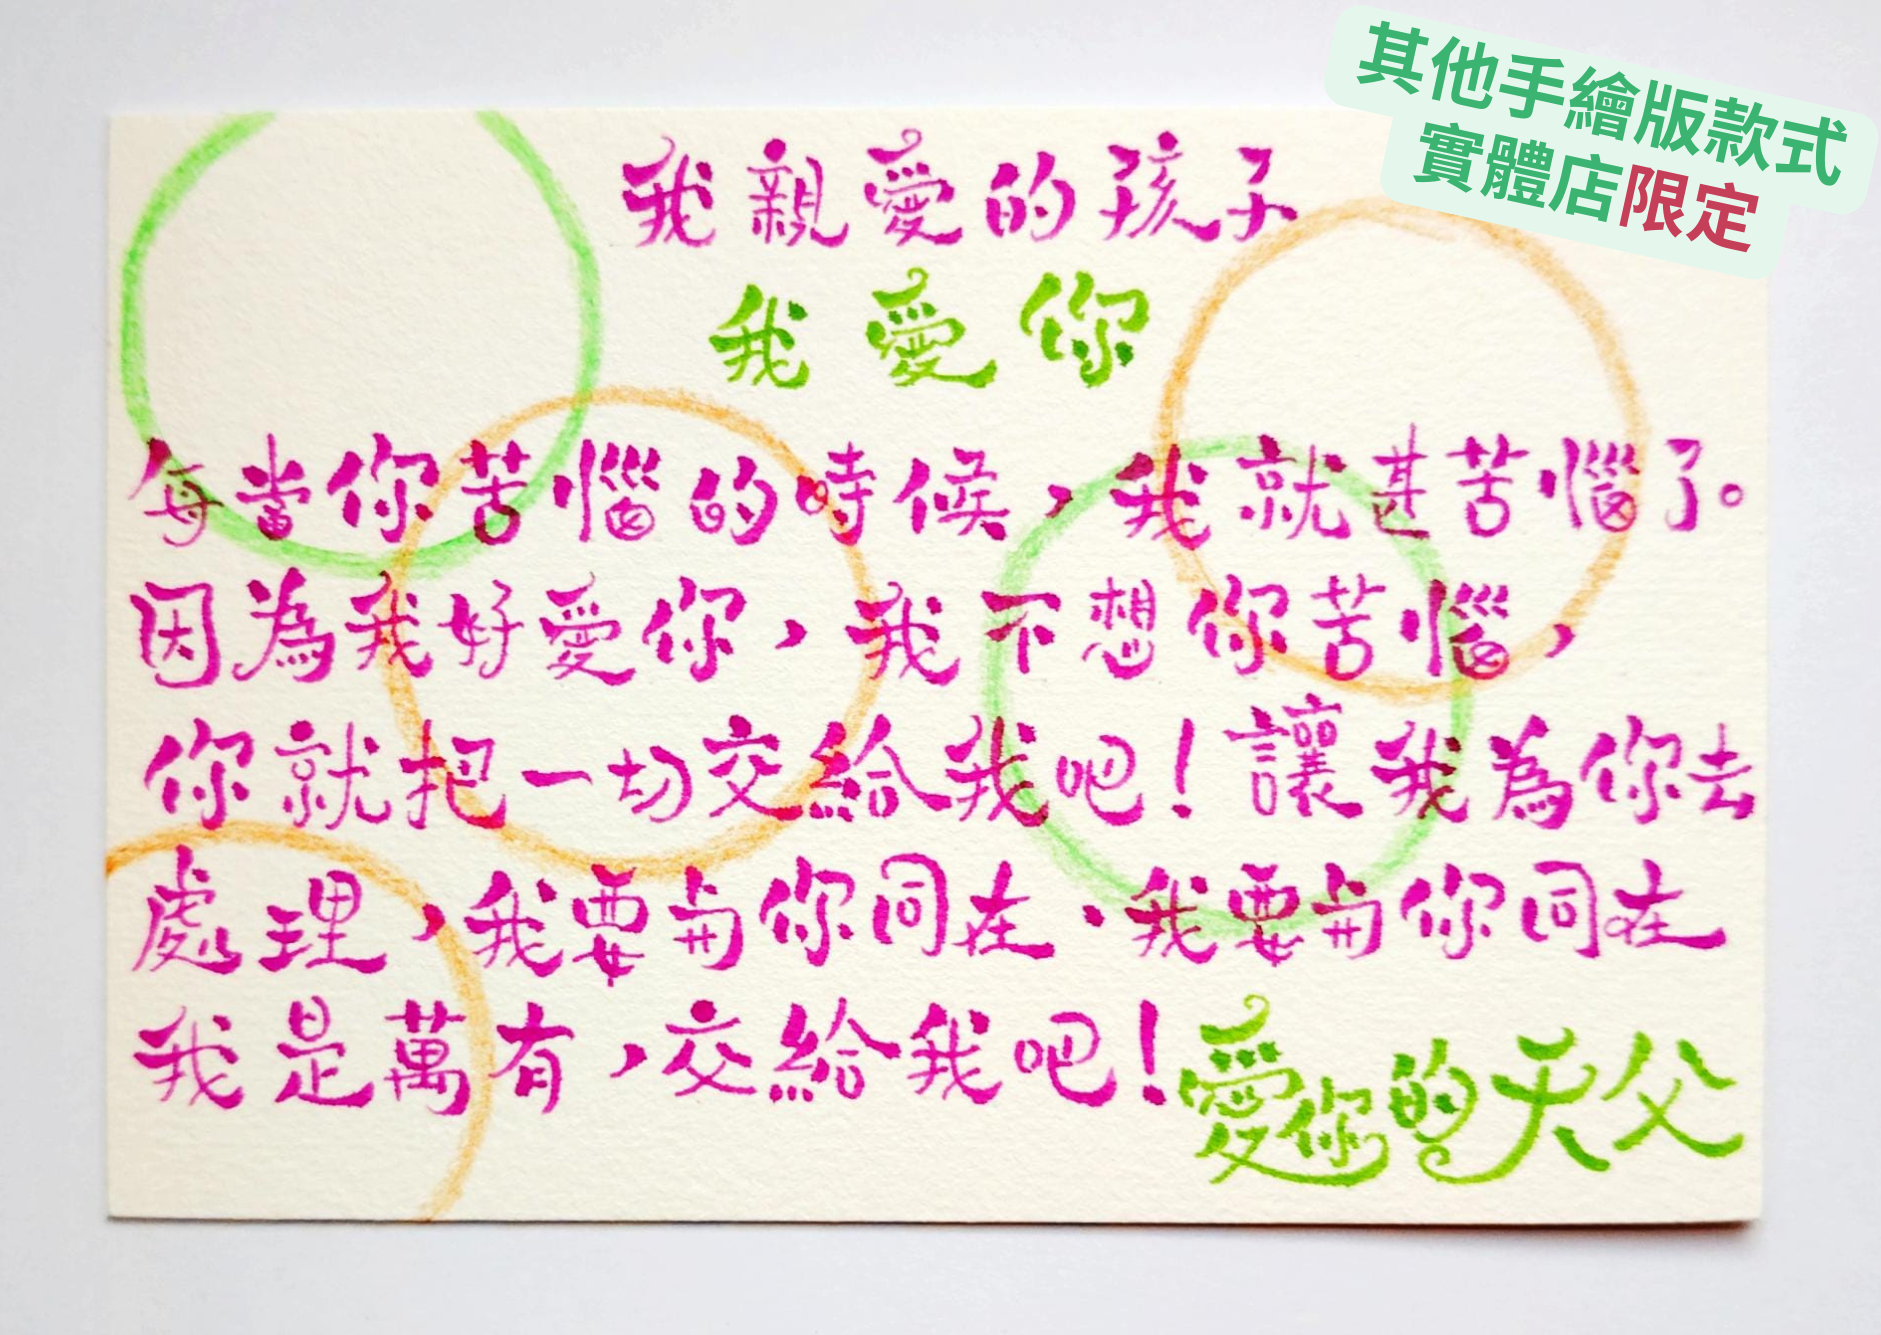 其他手繪版款式
實體店限定
我親愛的孩子
我愛你
每當你苦惱的時候，我就甚苦惱了。
因為我好愛你，我不想你苦惱，
你就把一切交給我吧！讓我為你去
處理，我要與你同在．我要與你同在
我是萬有，交給我吧！
愛你的天父